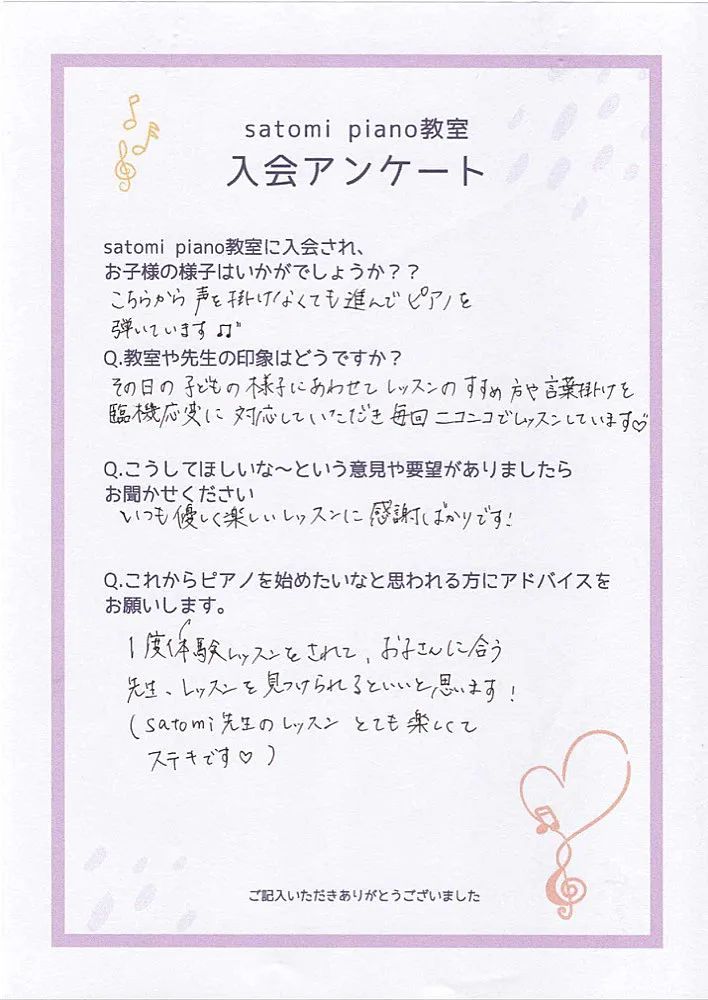 satomi piano教室
入会アンケート
satomi piano教室に入会され、
お子様の様子はいかがでしょうか？？
こちらから声を掛けなくても進んでピアノを
弾いています♫
Q.教室や先生の印象はどうですか？
その日の子どもの様子にあわせてレッスンのすすめ方や言葉掛けを
臨機応変に対応していただき毎回ニコニコでレッスンしています♡
Q.こうしてほしいな～という意見や要望がありましたら
お聞かせください
いつも優しく楽しいレッスンに感謝ばかりです!
Q.これからピアノを始めたいなと思われる方にアドバイスを
お願いします。
1度体験レッスンをされて、お子さんに合う
先生、レッスンを見つけられるといいと思います!
(satomi先生のレッスン とても楽しくて
ステキです♡)
ご記入いただきありがとうございました